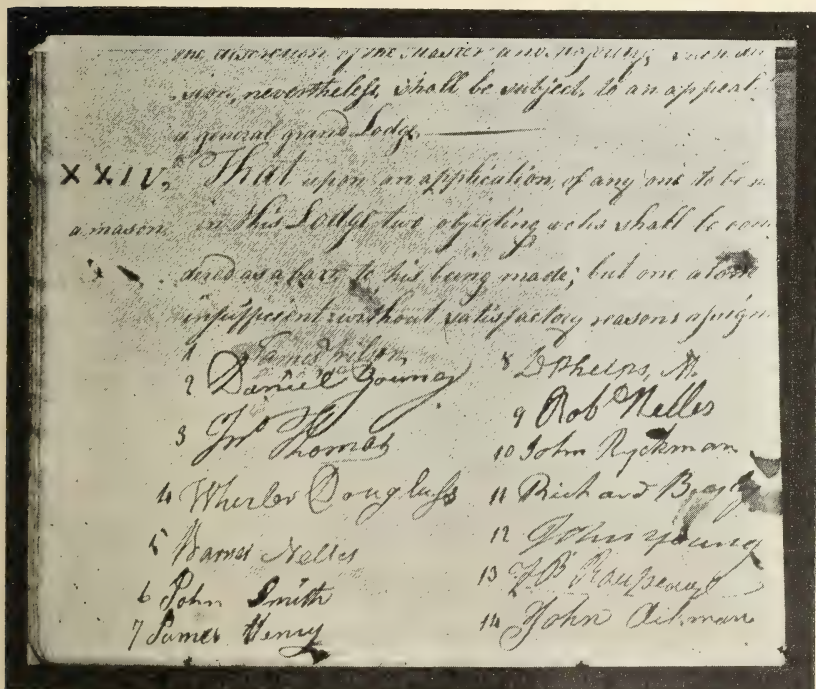 the discretion of the Master and Majority, such de
sion, nevertheless, shall be subject, to an appeal
a general grand Lodge.
XXIV, That upon an application, of any one to be m
a mason in this Lodge two objecting votes shall be con
dered as a barr to his being made; but one alone
insufficient without satisfactory reasons assign
1 James Wilson
2 Daniel Young
3 Jno Thomas
4 Wheeler Douglass
5 Warner Nelles
6 John Smith
7 James Henry
8 D Phelps, M.
9 Robt Nelles
10 John Ryckman
11 Richard Beasley
12 John Young
13 J B Rousseaux
14 John Aikman